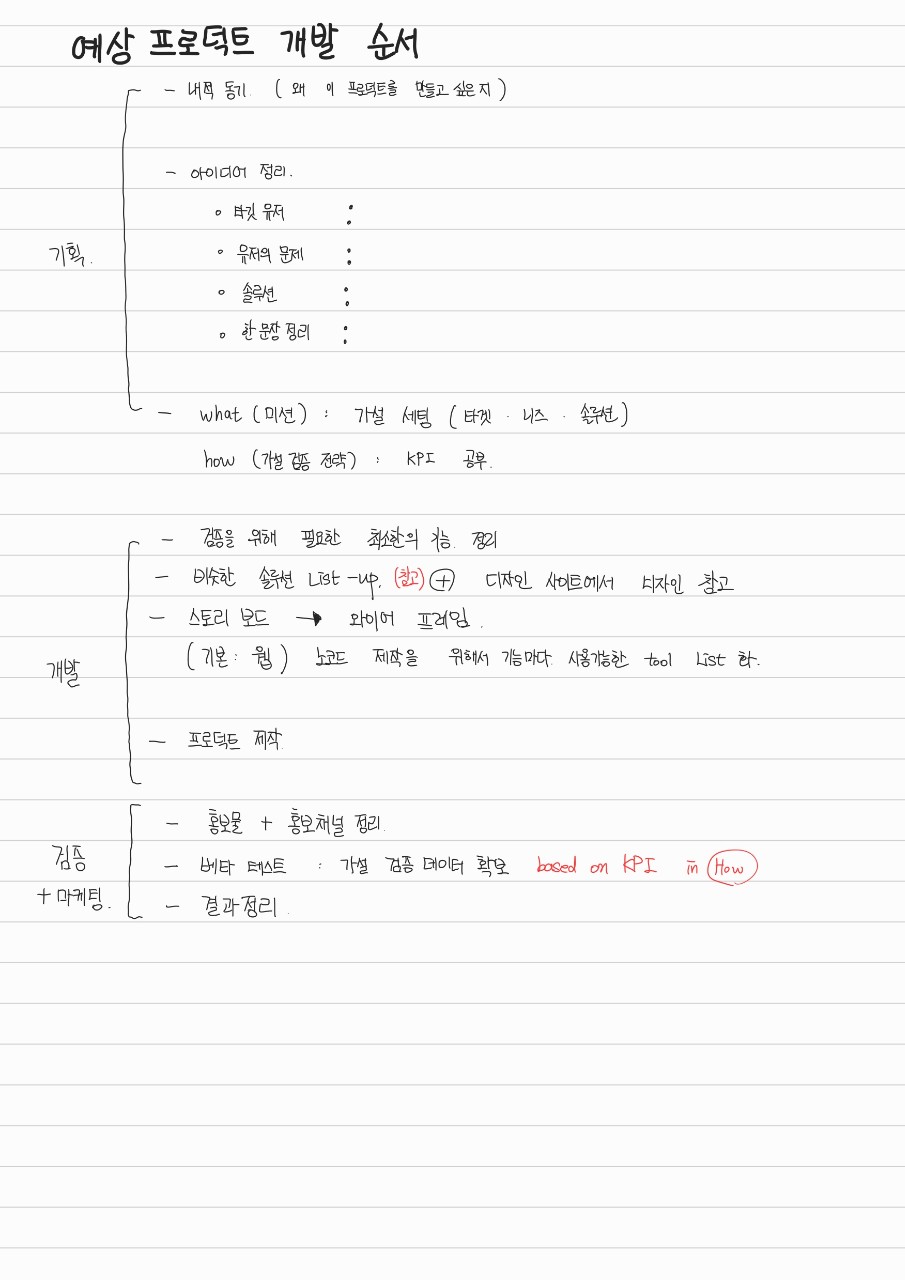 예상 프로덕트 개발 순서
- 내적 동기. (왜 이 프로덕트를 만들고 싶은지)
- 아이디어 정리.
◦ 타깃 유저 :
기획.
◦ 유저의 문제 :
◦ 솔루션 :
◦ 한 문장 정리 :
- what (미션) : 가설 세팅 (타겟 · 니즈 · 솔루션)
how (가설 검증 전략) : KPI 공부.
- 검증을 위해 필요한 최소한의 기능. 정리
- 비슷한 솔루션 List-up. (참고) ⊕ 디자인 사이트에서 디자인 참고
- 스토리 보드 → 와이어 프레임.
(기본 : 웹) 노코드 제작을 위해서 기능마다 사용가능한 tool List 화.
개발
- 프로덕트 제작.
- 홍보물 + 홍보채널 정리.
검증
- 베타 테스트 : 가설 검증 데이터 확보 based on KPI in How
+ 마케팅.
- 결과정리.